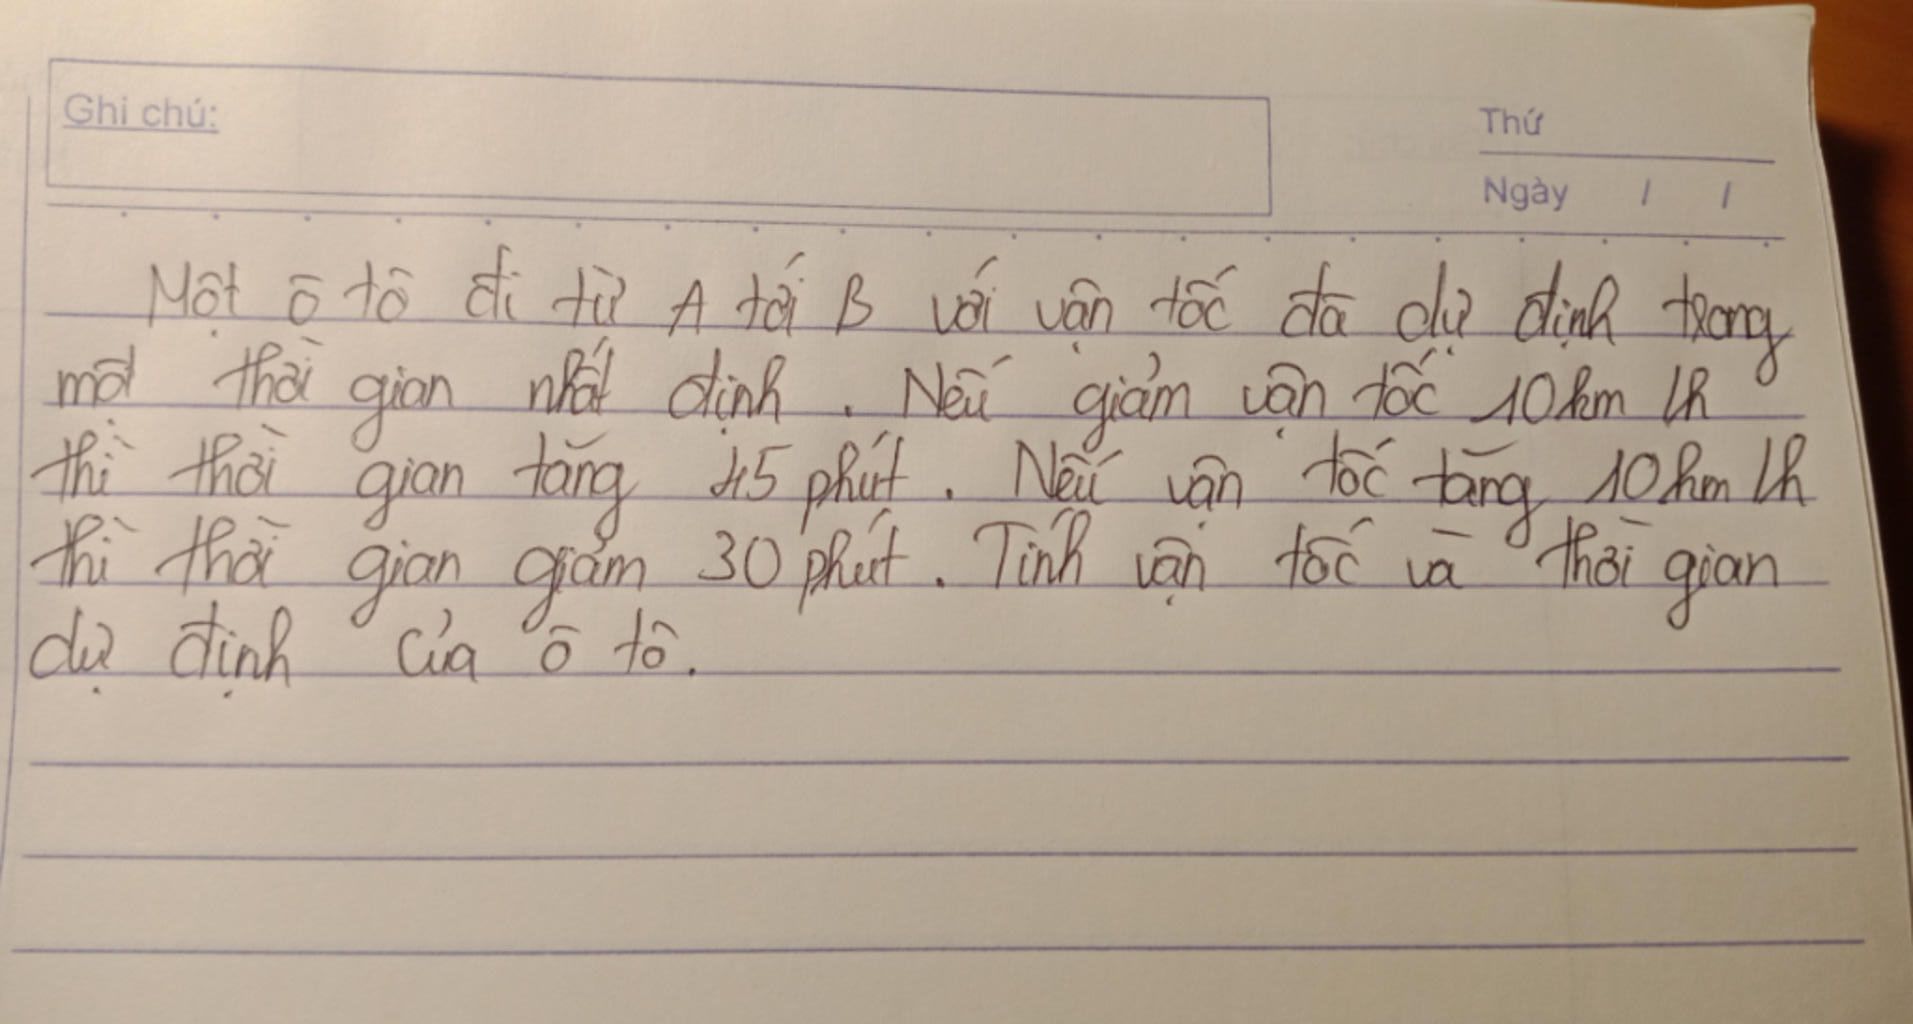 Ghi chú:
Thứ
Ngày / /
Một ô tô đi từ A tới B với vận tốc đã dự định trong
một thời gian nhất định. Nếu giảm vận tốc 10km/h
thì thời gian tăng 45 phút. Nếu vận tốc tăng 10km/h
thì thời gian giảm 30 phút. Tính vận tốc và thời gian
dự định của ô tô.